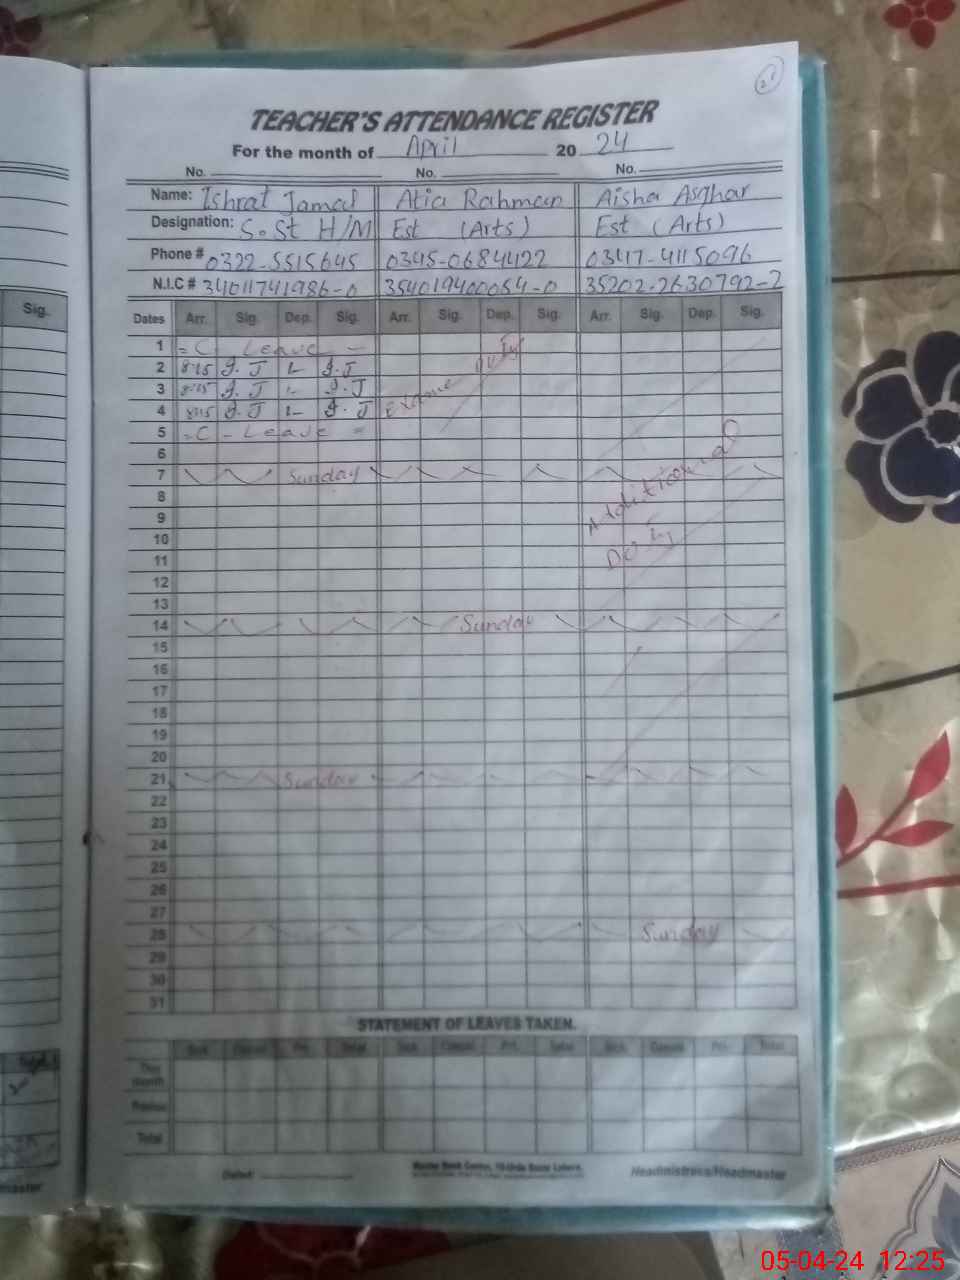 21
TEACHER'S ATTENDANCE REGISTER
For the month of April 20 24
No. No. No.
Name: Ishrat Jamal Atia Rahman Aisha Asghar
Designation: S.St H/M Est (Arts) Est (Arts)
Phone # 0322-5515645 0345-0684422 0347-4115096
N.I.C # 34011741986-0 354019400054-0 35202-2630792-2
Sig.
Dates Arr. Sig. Dep. Sig. Arr. Sig. Dep. Sig. Arr. Sig. Dep. Sig.
1 = C - Leave -
2 8:15 I.J 1- I.J
3 8:15 I.J 1- I.J
4 8:15 I.J 1- I.J
Exame Duty
5 = C - Leave =
6
7 Sunday
8
Additional
9
10
Duty
11
12
13
14 Sunday
15
16
17
18
19
20
21 Sunday
22
23
24
25
26
27
28 Sunday
29
30
31
STATEMENT OF LEAVES TAKEN.
Sick Casual Pri. Total Sick Casual Pri. Total Sick Casual Pri. Total
This month
Total
Dated: Headmistress/Headmaster
05-04-24 12:25